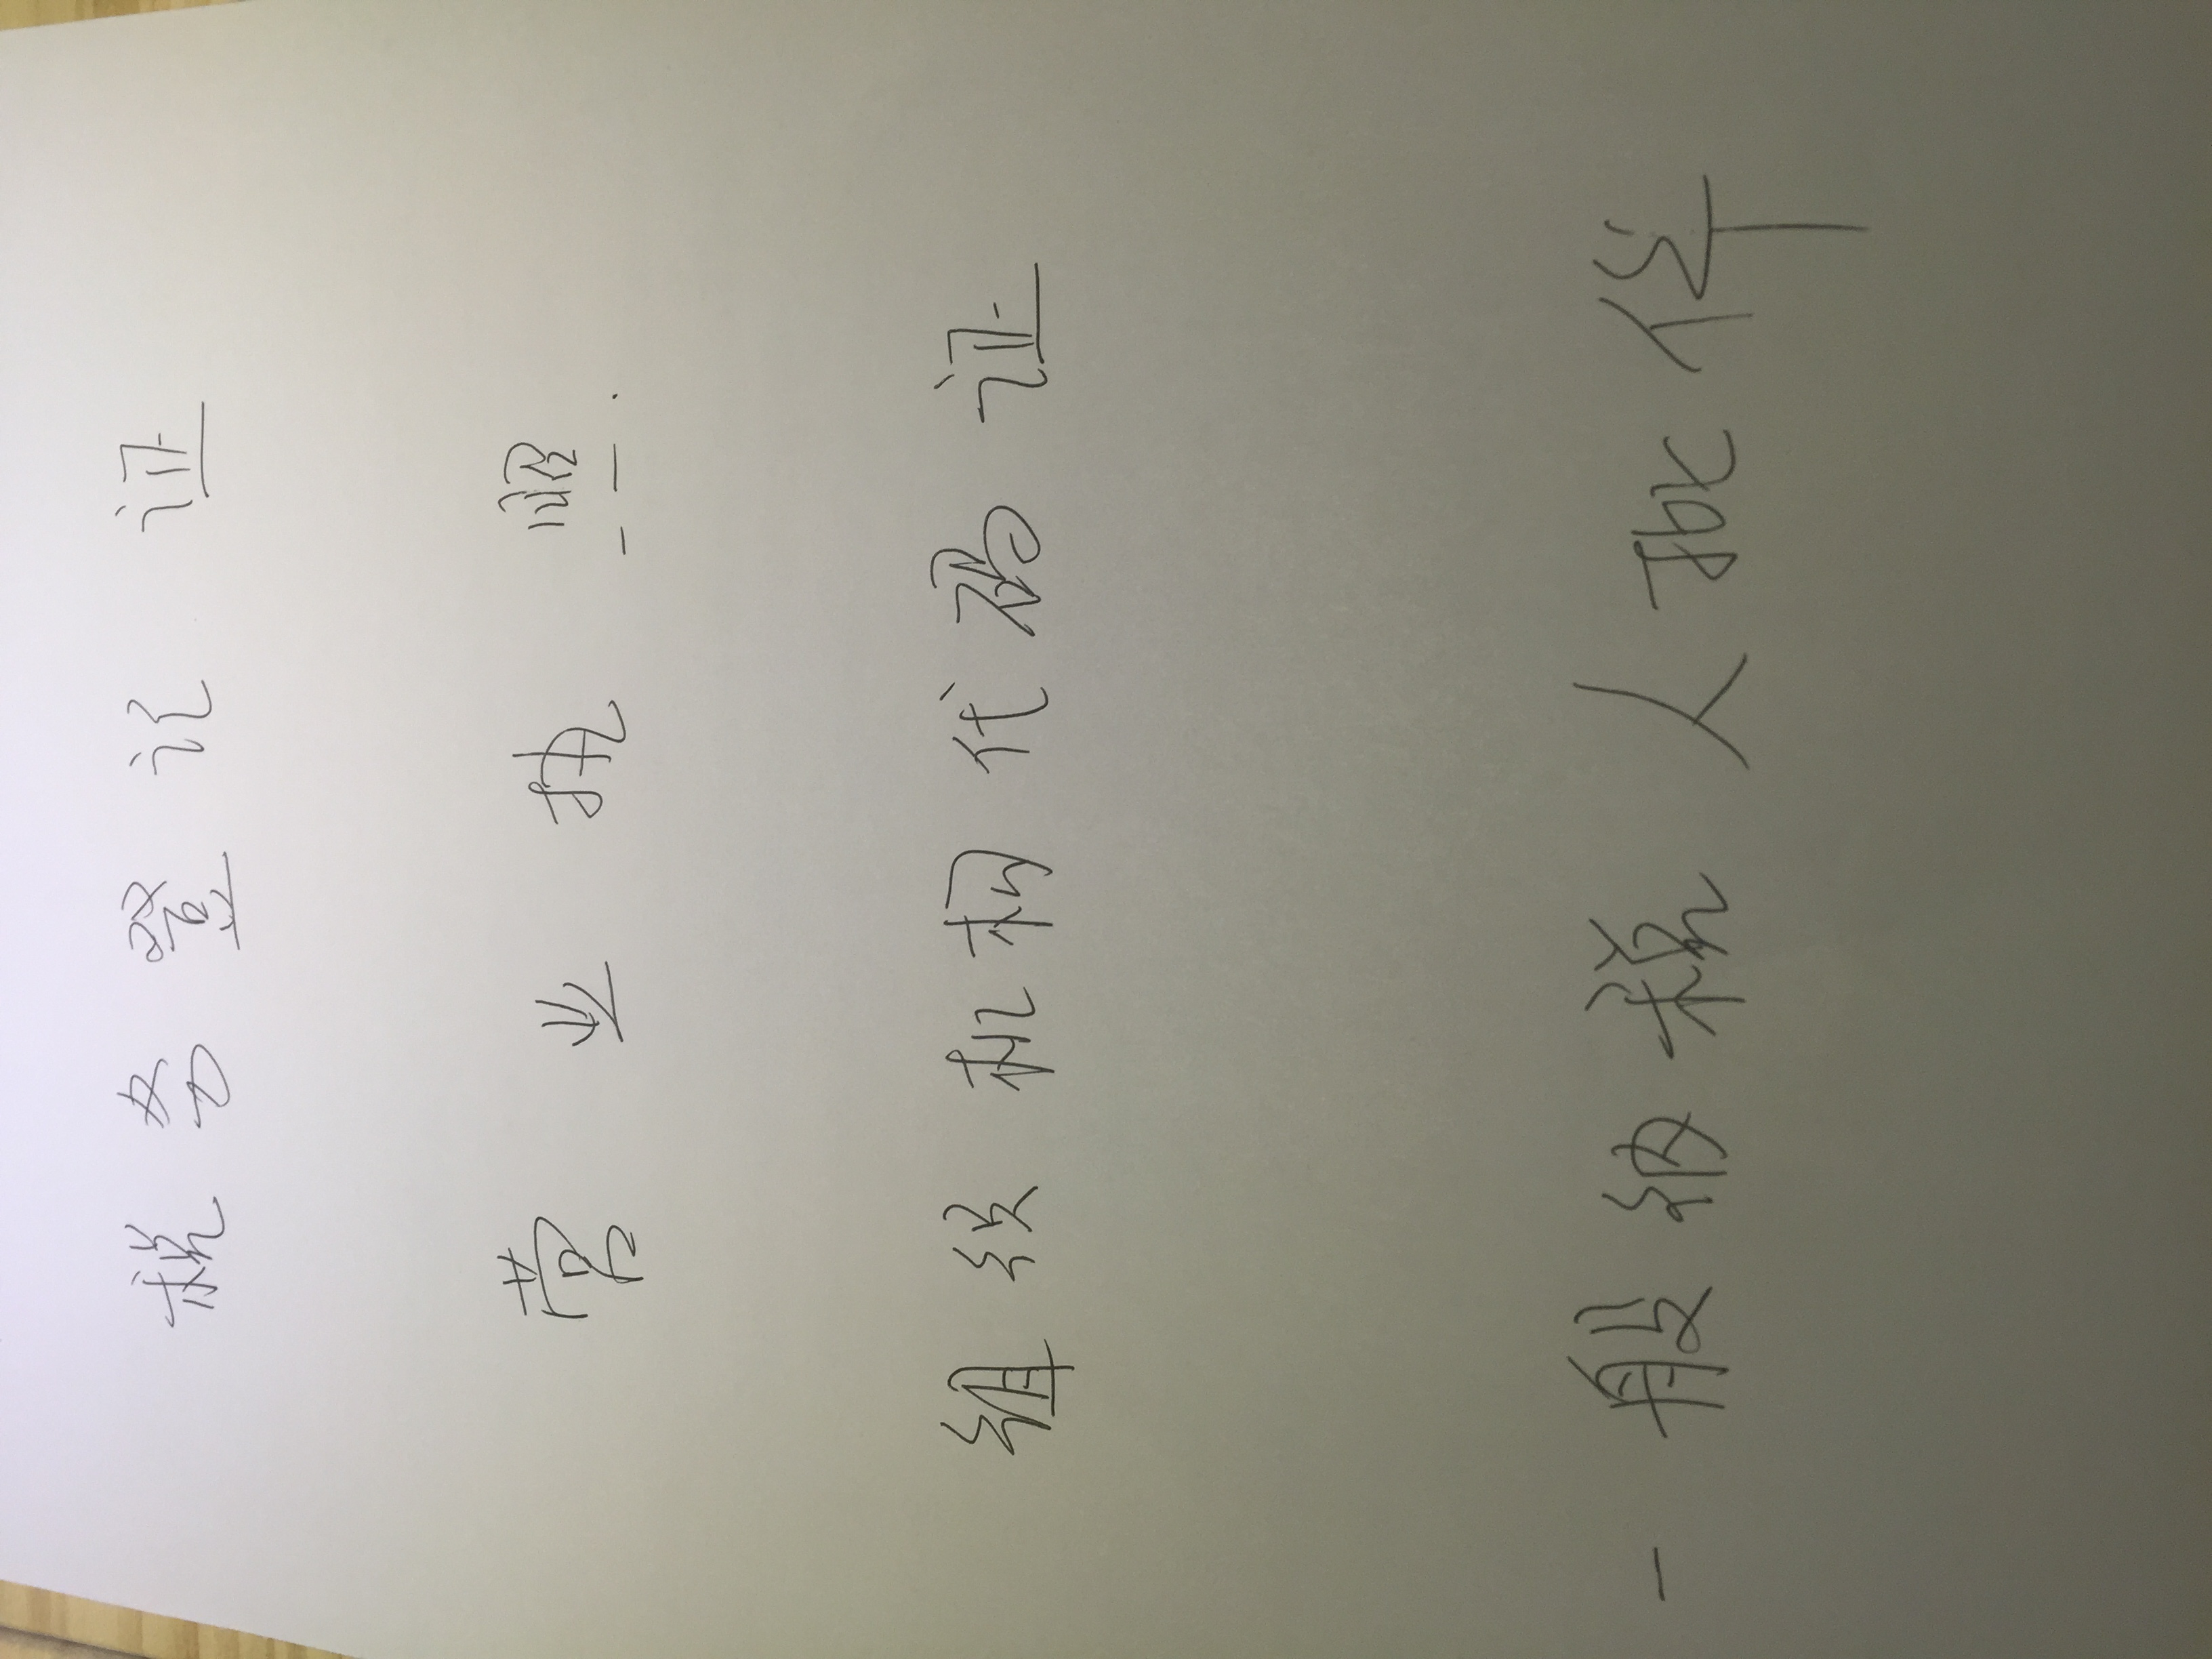 税务登记证
营业执照
组织机构代码证
一般纳税人批件